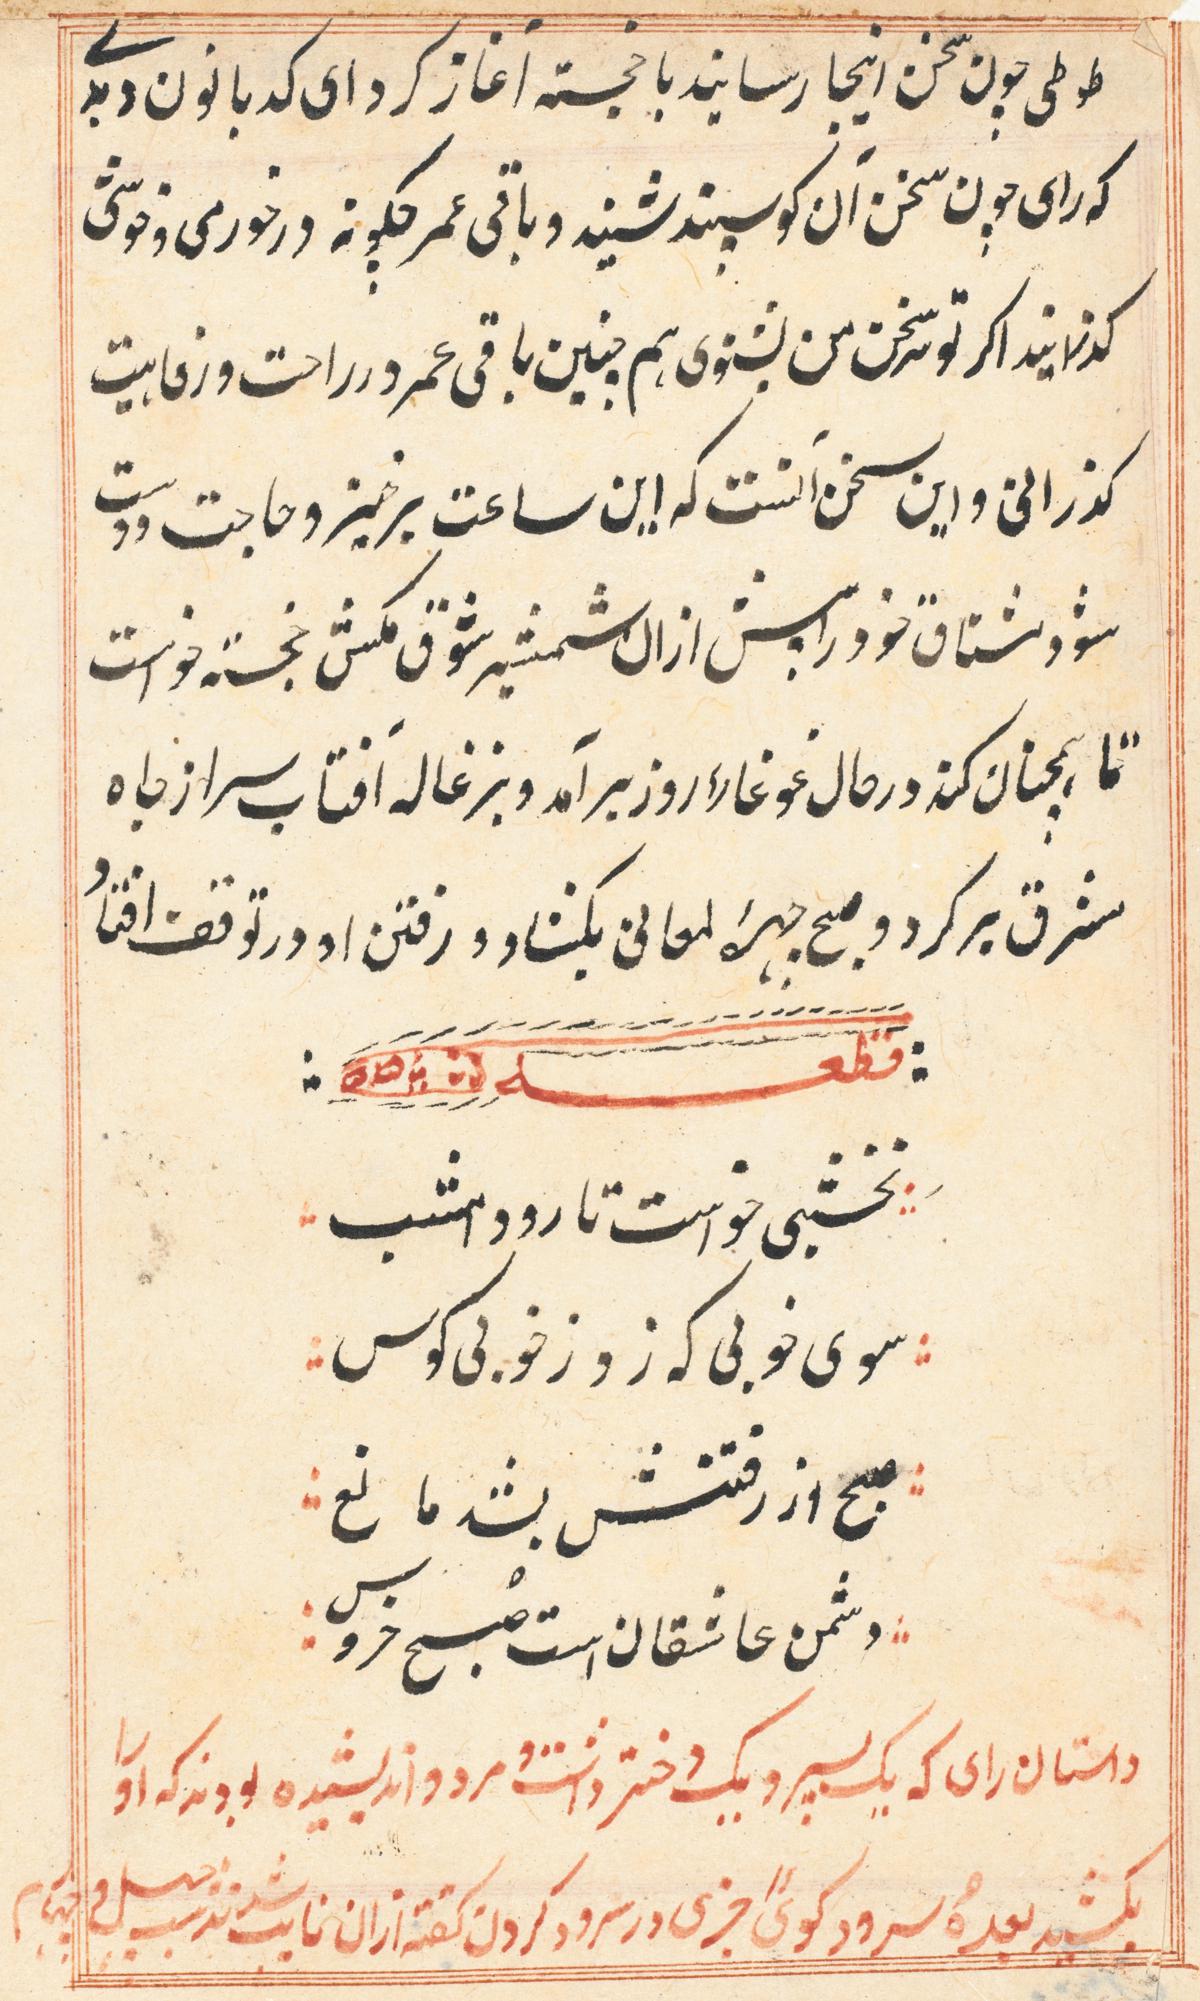 طوطی چون سخن اینجا رسانید با خجسته آغاز کرد ای کدبانون دیدے
که رای چون سخن آن کوسپند شنید و باقی عمر چکونه در خورمی و خوشی
کذرانید اکر تو سخن من بشنوی هم چنین باقی عمر در راحت و رفاهیت
کذرانی و این سخن آنست که این ساعت برخیز و حاجت دوست
شو و مشتاق خود را پیش ازان شمشیر شوق مکش خجسته خواست
تا همچنان کند در حال غوغاء روز برآمد و بزغاله آفتاب سر از چاه
شرق بر کرد و صبح چهرۀ لمعانی بکشاد و رفتن او در توقف افتاد
قطعه
نخشبی خواست تا رود امشب
سوی خوبی که زد ز خوبی کوس
صبح از رفتنش بشد مانع
دشمن عاشقان است صبح خروس
داستان رای که یک پسر و یک دختر داشت و هر دو اندیشیده بودند که او را
بکشید بعده سرود کوئی چیزی در سرود کردن کفته ازان تایب شدند شب چهل و چهارم